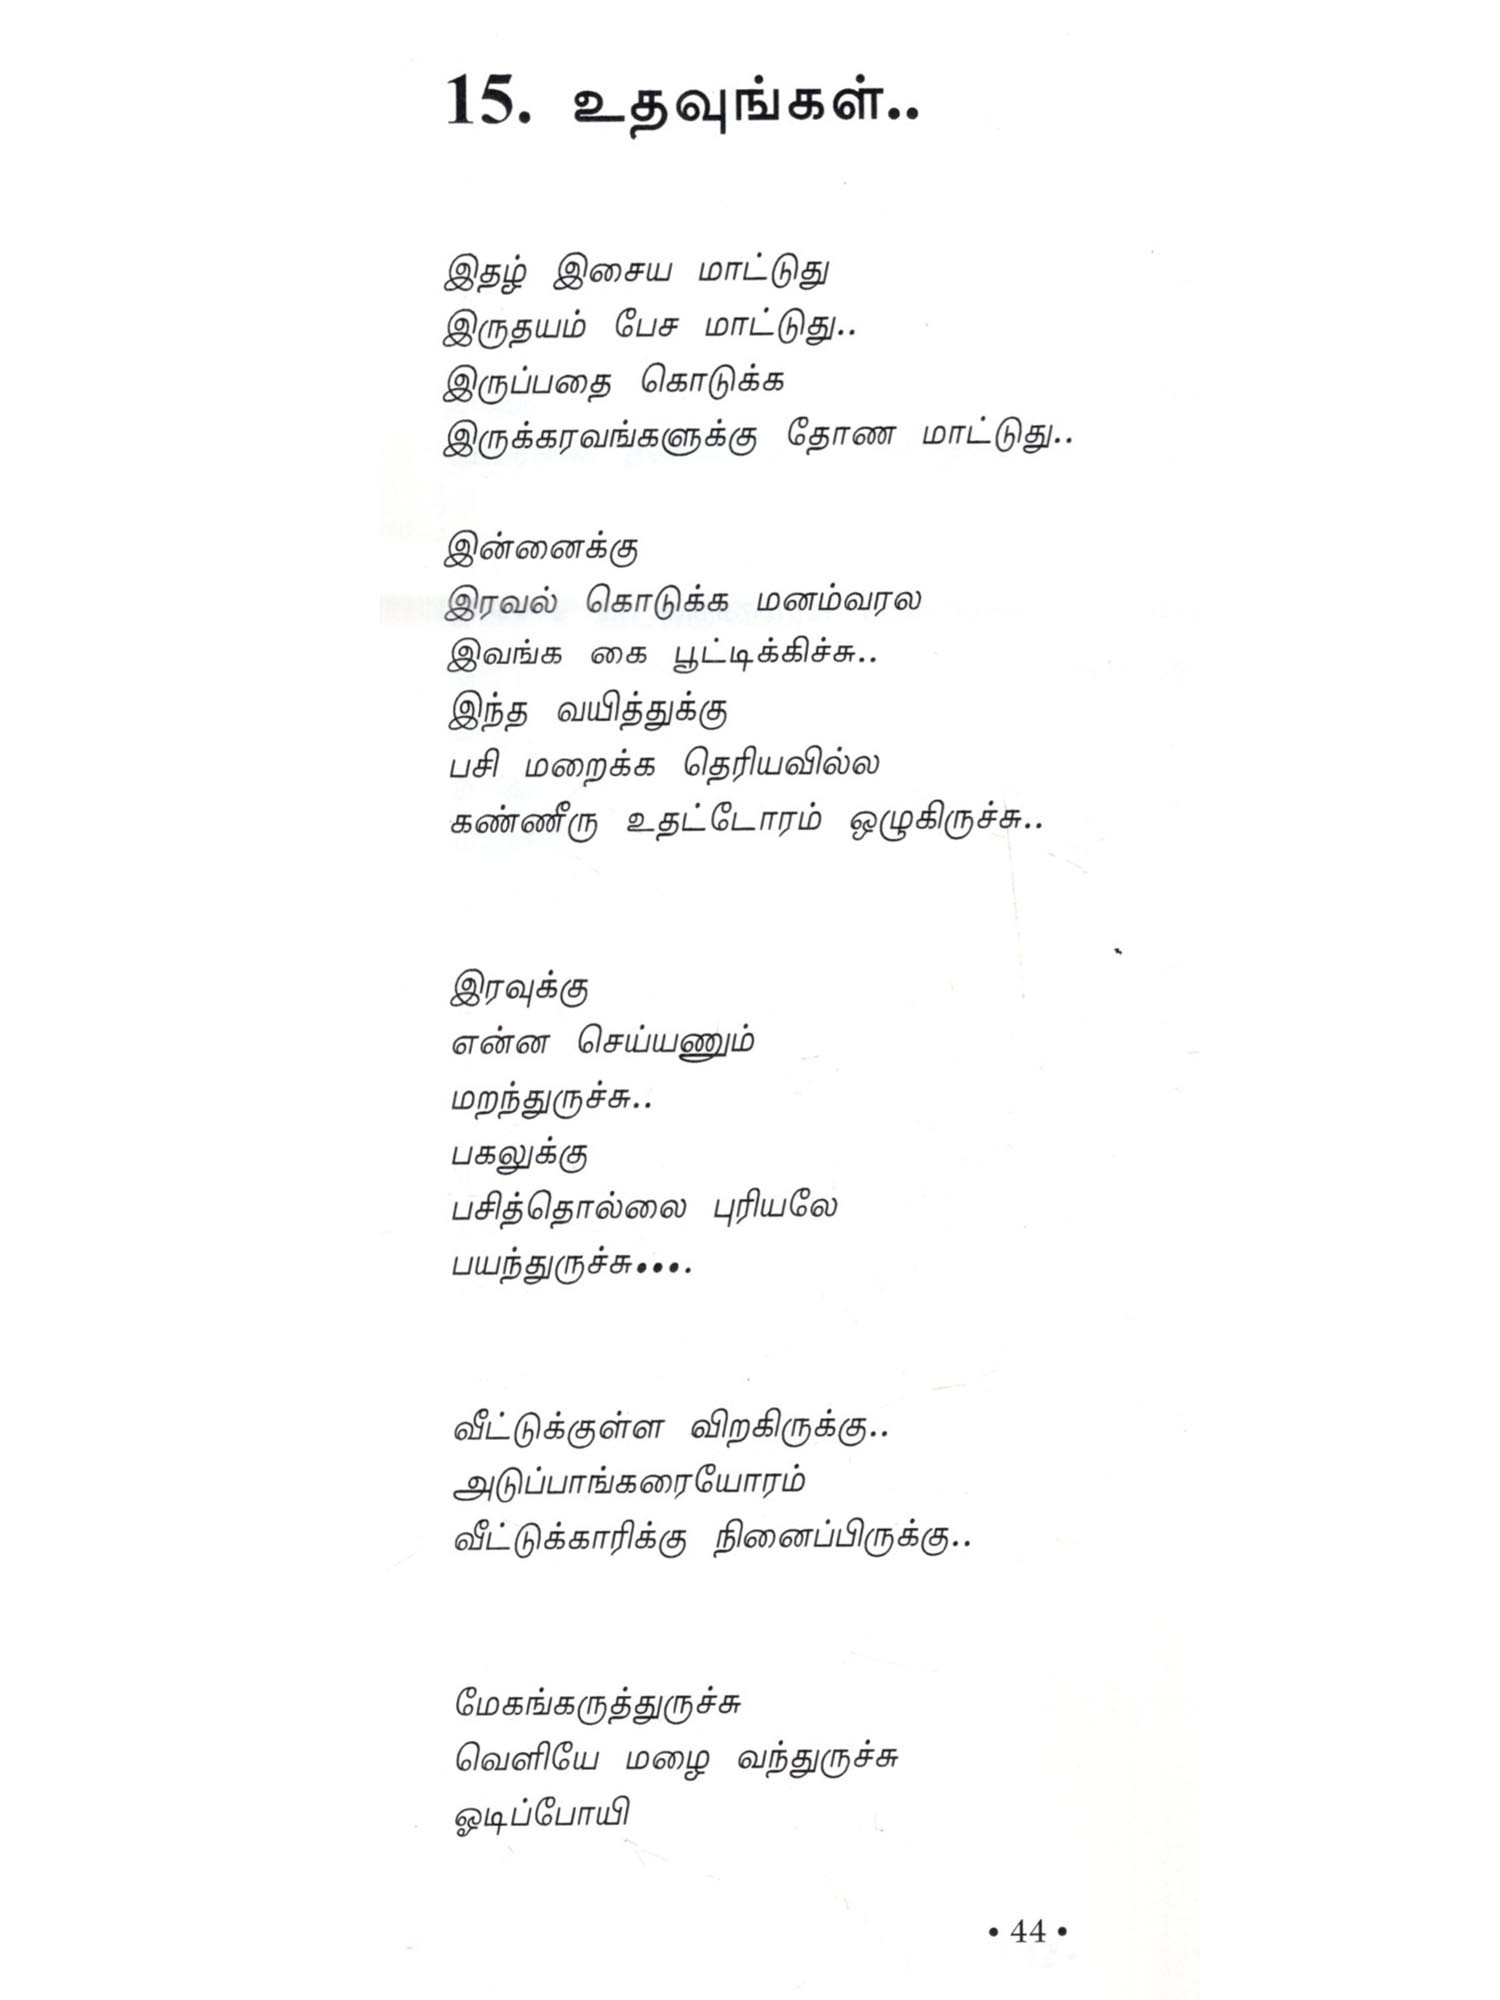 15. உதவுங்கள்..
இதழ் இசைய மாட்டுது
இருதயம் பேச மாட்டுது..
இருப்பதை கொடுக்க
இருக்கரவங்களுக்கு தோண மாட்டுது..
இன்னைக்கு
இரவல் கொடுக்க மனம்வரல
இவங்க கை பூட்டிக்கிச்சு..
இந்த வயித்துக்கு
பசி மறைக்க தெரியவில்ல
கண்ணீரு உதட்டோரம் ஒழுகிருச்சு..
இரவுக்கு
என்ன செய்யணும்
மறந்துருச்சு..
பகலுக்கு
பசித்தொல்லை புரியலே
பயந்துருச்சு....
வீட்டுக்குள்ள விறகிருக்கு..
அடுப்பாங்கரையோரம்
வீட்டுக்காரிக்கு நினைப்பிருக்கு..
மேகங்கருத்துருச்சு
வெளியே மழை வந்துருச்சு
ஓடிப்போயி
• 44 •